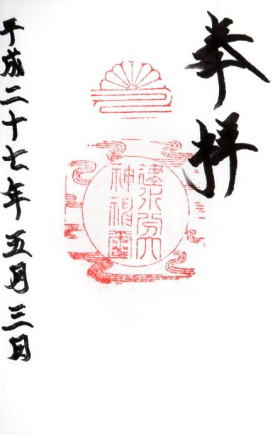 奉拝
建水分大
神璽
平成二十七年五月三日